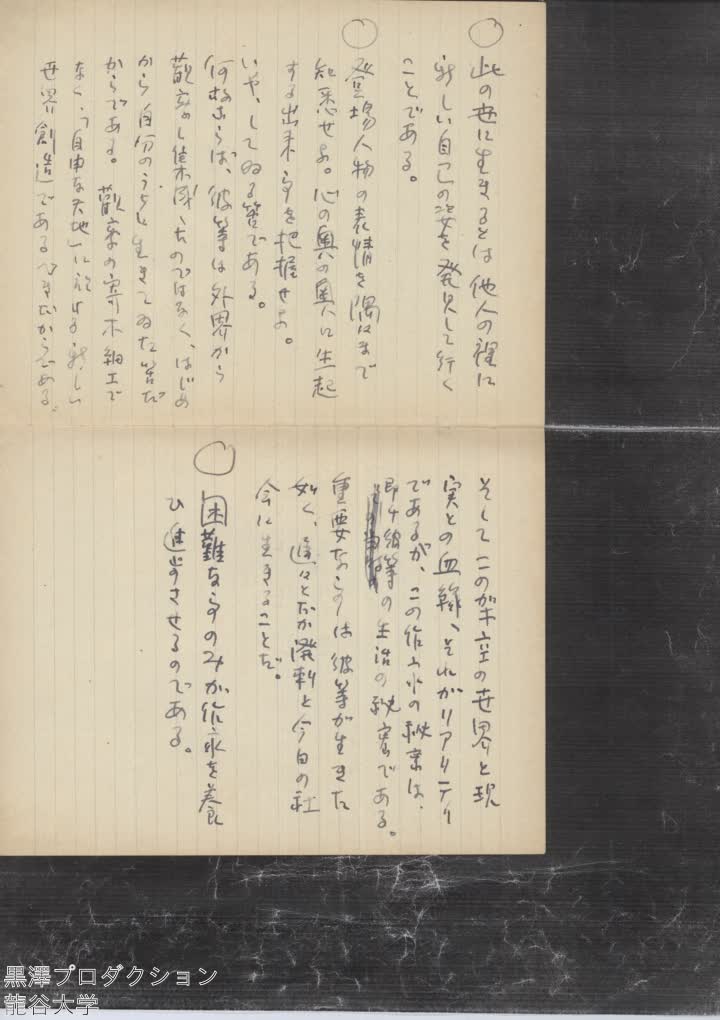 ○ 此の世に生きるとは他人の裡に
新しい自己の姿を発見して行く
ことである。
○ 登場人物の表情を隅々まで
知悉せよ。心の奥の奥に生起
する出来事を把握せよ。
いや、してゐる筈である。
何故ならば、彼等は外界から
観察し集めたものではなく、はじめ
から自分のうちに生きてゐた筈だ
からである。観察の寄木細工で
なく、「自由な天地」に於ける新しい
世界創造であるべきだからである。
そしてこの架空の世界と現
実との血縁、それがリアリティ
であるが、この作家の秘密は、
即ち彼等の生活の秘密である。
重要なのは彼等が生きた
如く、溌剌と今日の社
会に生きることだ。
○ 困難なもののみが作家を養
ひ進歩させるのである。
黒澤プロダクション
龍谷大学